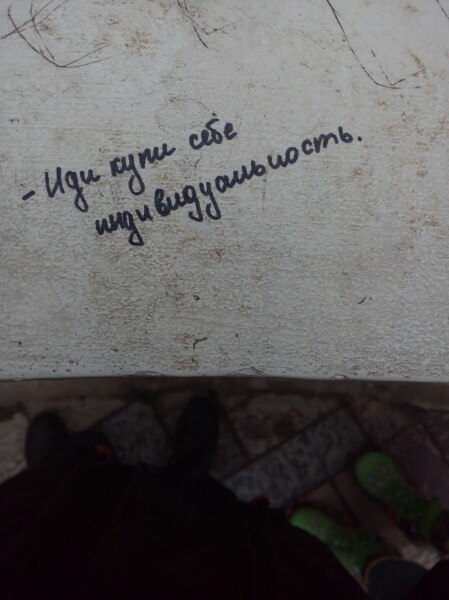 - Иди купи себе
индивидуальность.